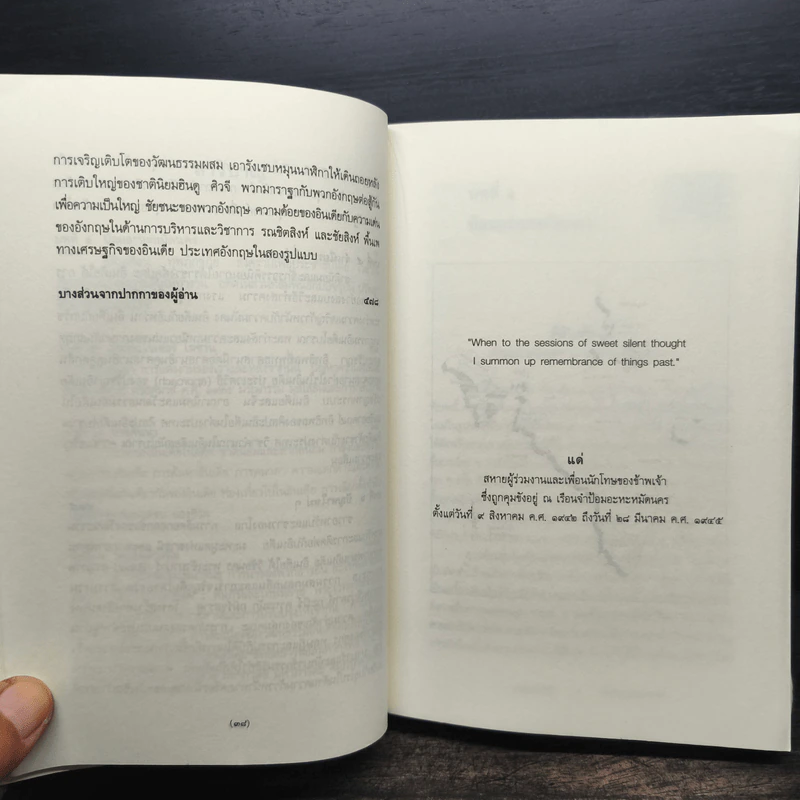 การเจริญเติบโตของวัฒนธรรมผสม เอารังเซบหมุนนาฬิกาให้เดินถอยหลัง
การเติบใหญ่ของชาตินิยมฮินดู ศิวจี พวกมาราฐากับพวกอังกฤษต่อสู้กัน
เพื่อความเป็นใหญ่ ชัยชนะของพวกอังกฤษ ความด้อยของอินเดียกับความเด่น
ของอังกฤษในด้านการบริหารและวิชาการ รณชิตสิงห์ และชัยสิงห์ พื้นเพ
ทางเศรษฐกิจของอินเดีย ประเทศอังกฤษในสองรูปแบบ
บางส่วนจากปากกาของผู้อ่าน ๔๗๘
(๓๘)
"When to the sessions of sweet silent thought
I summon up remembrance of things past."
แด่
สหายผู้ร่วมงานและเพื่อนนักโทษของข้าพเจ้า
ซึ่งถูกคุมขังอยู่ ณ เรือนจำป้อมอะหะหมัดนคร
ตั้งแต่วันที่ ๙ สิงหาคม ค.ศ. ๑๙๔๒ ถึงวันที่ ๒๘ มีนาคม ค.ศ. ๑๙๔๕